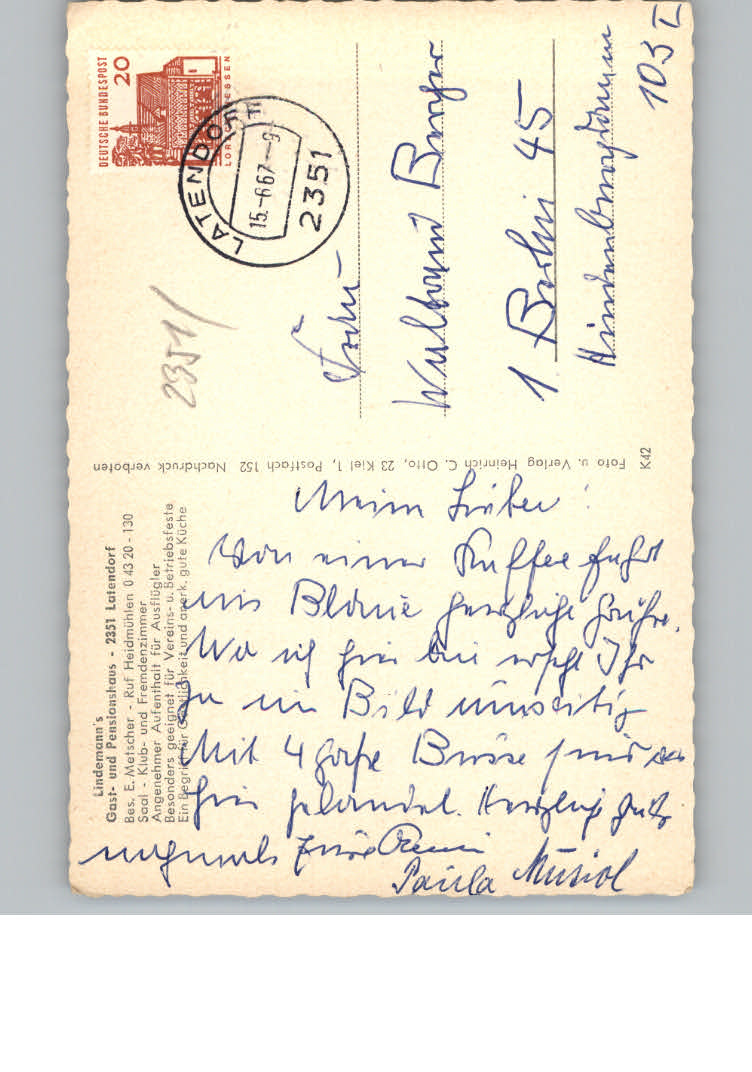 Lindemann's
Gast- und Pensionshaus - 2351 Latendorf
Bes. E. Metscher - Ruf Heidmühlen 0 43 20 - 130
Saal - Klub- und Fremdenzimmer
Angenehmer Aufenthalt für Ausflügler
Besonders geeignet für Vereins- u. Betriebsfeste
Ein Begriff für Gemütlichkeit und anerk. gute Küche
Meine Lieben!
Von einer Kaffeefahrt
ins Blaue herzliche Grüße.
Wo ich hier bin seht Ihr
ja im Bild umseitig
Mit 4 große Busse sind wir
hier gelandet. Herzliche
nochmals Eure
Paula Musiol
Foto u. Verlag Heinrich C. Otto, 23 Kiel 1, Postfach 152 Nachdruck verboten
K42
DEUTSCHE BUNDESPOST
20
LORSCH HESSEN
LATENDORF
15.-6.67.-9
2351
2351/
Frau
Waltraud Berger
1 Berlin 45
Hindenburgdamm
103 I